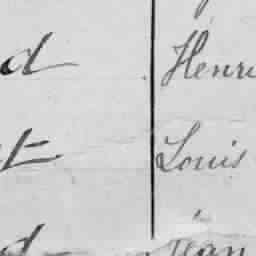 d Henri
t Louis
d Jean